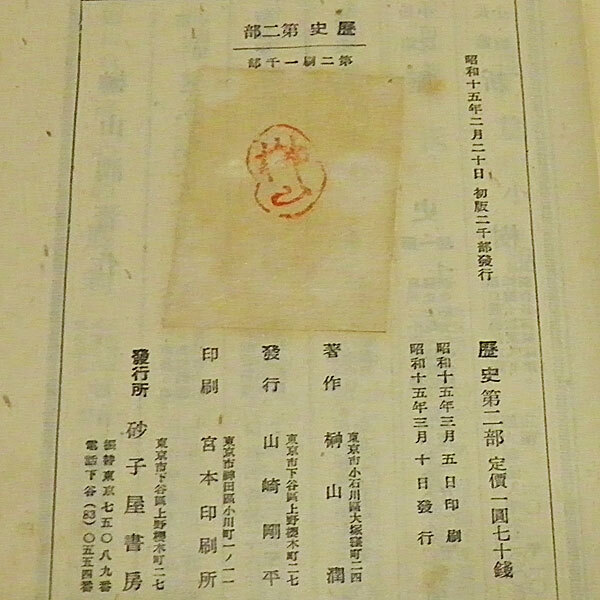 歷史第二部
第二刷一千部
昭和十五年二月二十日 初版二千部發行
歷史第二部 定價一圓七十錢
昭和十五年三月五日印刷
昭和十五年三月十日發行
東京市小石川區大塚窪町二四
著作 榊山潤
東京市下谷區上野櫻木町二七
發行 山崎剛平
東京市神田區小川町一ノ一一
印刷 宮本印刷所
東京市下谷區上野櫻木町二七
發行所 砂子屋書房
振替東京七五〇八九番
電話下谷(83)〇五五四番